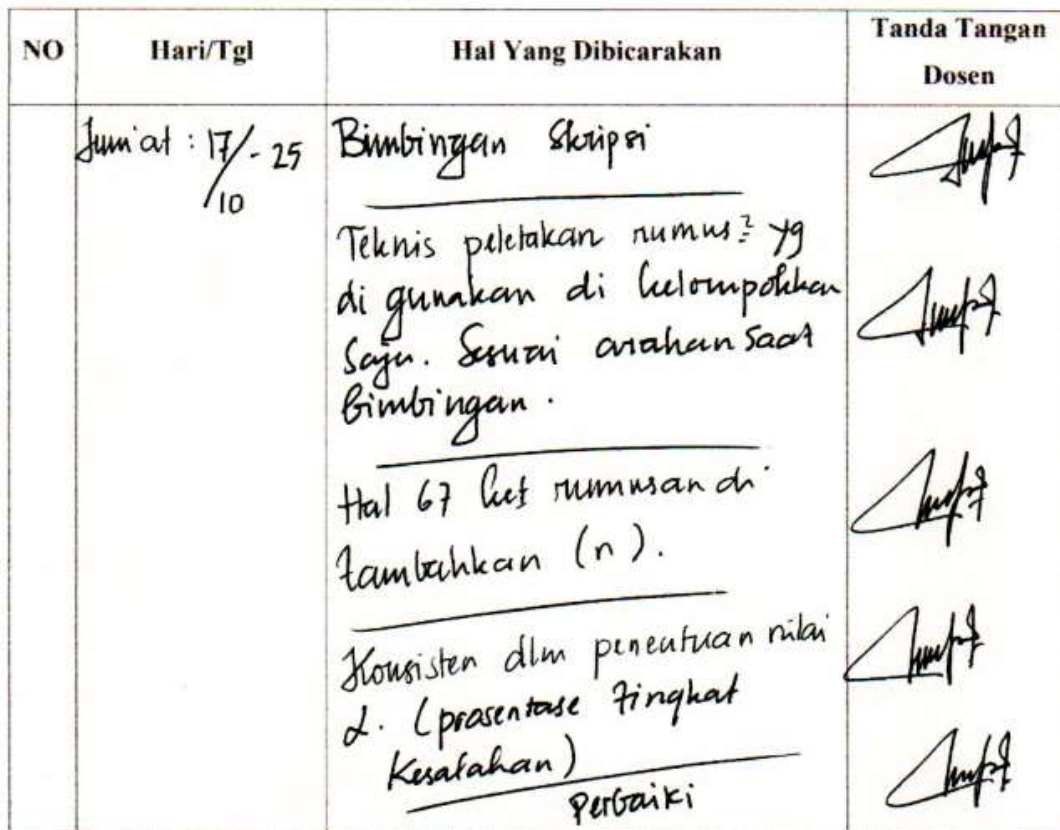 NO Hari/Tgl Hal Yang Dibicarakan Tanda Tangan Dosen
Jum'at : 17/10 - 25 Bimbingan Skripsi
Teknis peletakan rumus² yg
di gunakan di kelompokkan
Saja. Sesuai arahan saat
bimbingan.
Hal 67 ket rumusan di
tambahkan (n).
Konsisten dlm penentuan nilai
α. (prosentase tingkat
Kesalahan)
Perbaiki